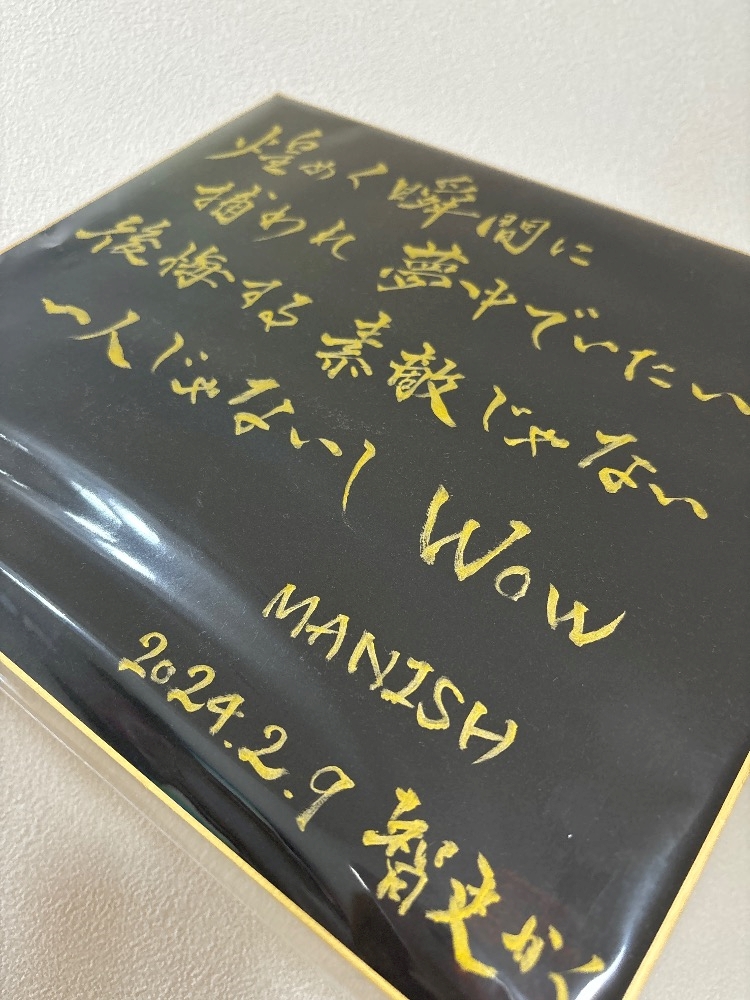 煌めく瞬間に
捕われ 夢中でいたい
後悔する 素敵じゃない
一人じゃないし Wow
MANISH
2024.2.9 智史かく